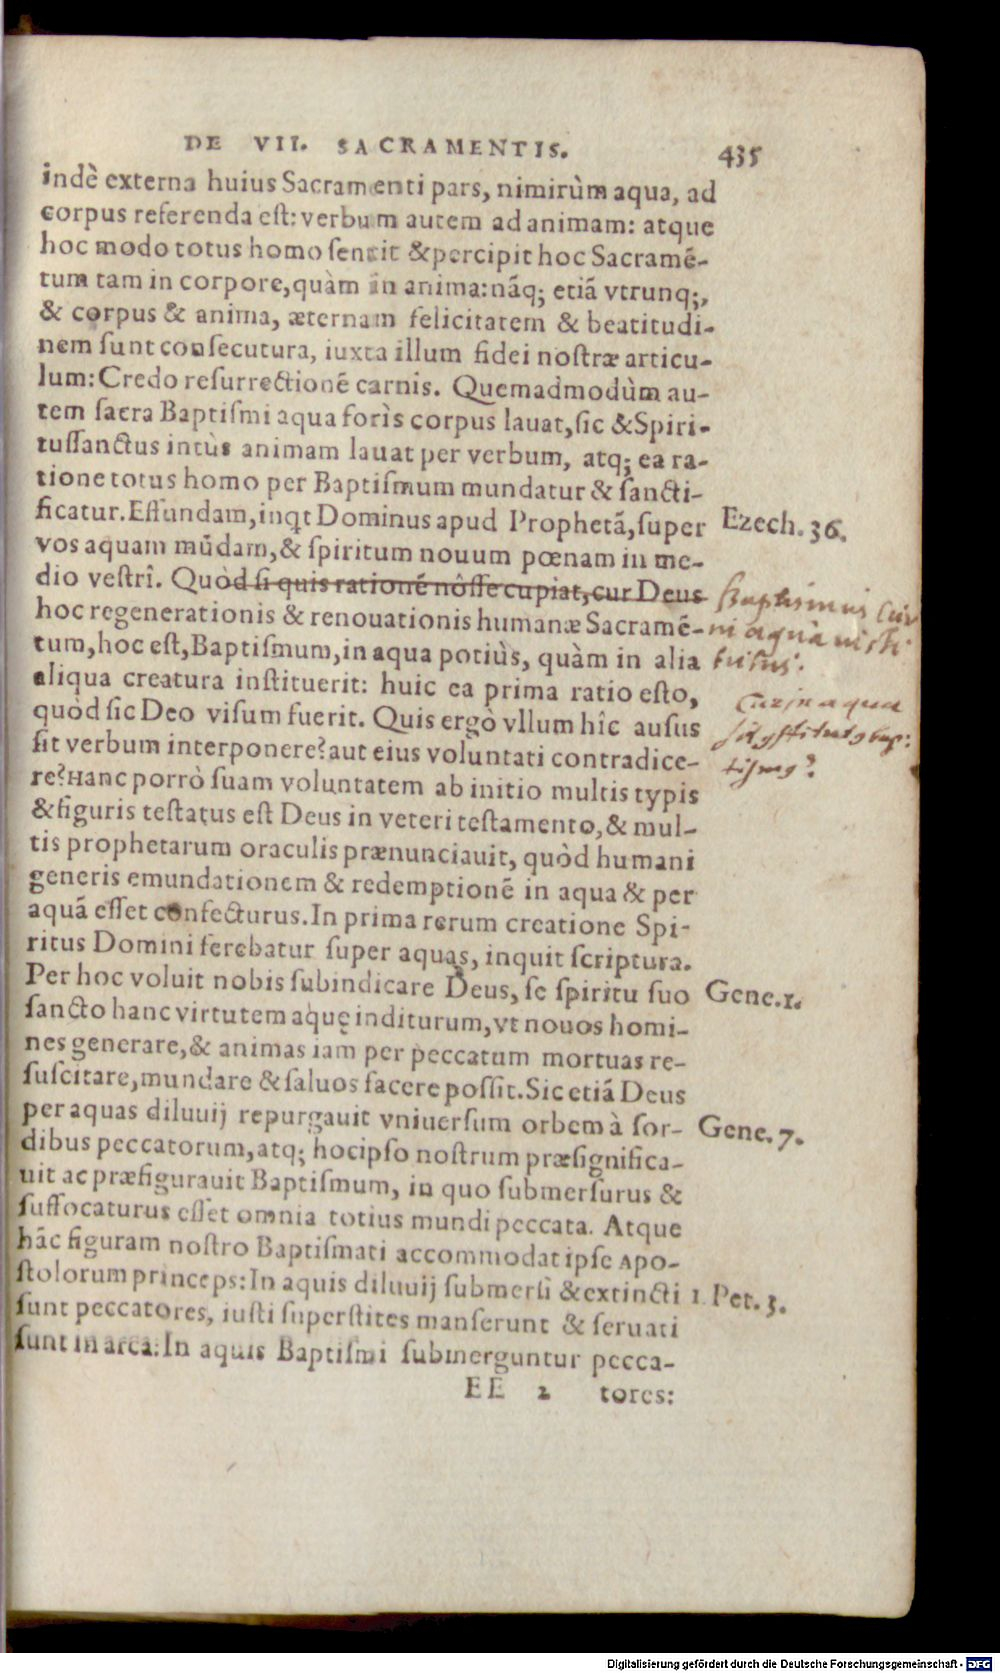 DE VII. SACRAMENTIS. 435
indè externa huius Sacramenti pars, nimirùm aqua, ad
corpus referenda est: verbum autem ad animam: atque
hoc modo totus homo sentit & percipit hoc Sacramē-
tum tam in corpore, quàm in anima: nāq; etiā vtrunq;,
& corpus & anima, æternam felicitatem & beatitudi-
nem sunt consecutura, iuxta illum fidei nostræ articu-
lum: Credo resurrectionē carnis. Quemadmodùm au-
tem sacra Baptismi aqua forìs corpus lauat, sic & Spiri-
tussanctus intùs animam lauat per verbum, atq; ea ra-
tione totus homo per Baptismum mundatur & sancti-
ficatur. Effundam, inqt Dominus apud Prophetā, super
Ezech. 36.
vos aquam mūdam, & spiritum nouum pœnam in me-
dio vestrî. Quòd si quis rationē nôsse cupiat, cur Deus
hoc regenerationis & renouationis humanæ Sacramē-
tum, hoc est, Baptismum, in aqua potiùs, quàm in alia
aliqua creatura instituerit: huic ea prima ratio esto,
quòd sic Deo visum fuerit. Quis ergò vllum hîc ausus
sit verbum interponere? aut eius voluntati contradice-
re? Hanc porrò suam voluntatem ab initio multis typis
& figuris testatus est Deus in veteri testamento, & mul-
tis prophetarum oraculis prænunciauit, quòd humani
generis emundationem & redemptionē in aqua & per
aquā esset confecturus. In prima rerum creatione Spi-
ritus Domini ferebatur super aquas, inquit scriptura.
Per hoc voluit nobis subindicare Deus, se spiritu suo
Gene. 1.
sancto hanc virtutem aquę inditurum, vt nouos homi-
nes generare, & animas iam per peccatum mortuas re-
suscitare, mundare & saluos facere possit. Sic etiā Deus
per aquas diluuij repurgauit vniuersum orbem à sor-
Gene. 7.
dibus peccatorum, atq; hocipso nostrum præsignifica-
uit ac præfigurauit Baptismum, in quo submersurus &
suffocaturus esset omnia totius mundi peccata. Atque
hāc figuram nostro Baptismati accommodat ipse Apo-
stolorum princeps: In aquis diluuij submersi & extincti
1. Pet. 3.
sunt peccatores, iusti superstites manserunt & seruati
sunt in arca: In aquis Baptismi submerguntur pecca-
EE 2 tores:
Baptismus cur
in aqua insti
tutus.
Cur in aqua
sit institutus bap:
tismus?
Digitalisierung gefördert durch die Deutsche Forschungsgemeinschaft - DFG